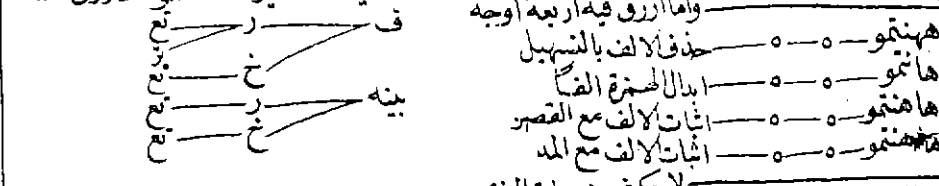 واما ازرق فيه اربعة اوجه
ههنتمو ه ه حذف الالف بالتسهيل
هانتمو ه ه ابدال الهمزة الفا
هاهنتمو ه ه اثبات الالف مع القصر
هاهنتمو ه ه اثبات الالف مع المد
ف ر تع
تر
خ تع
بينه ر تع
خ تع